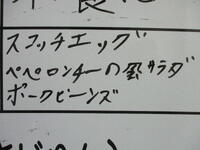 スコッチエッグ
ペペロンチーの風サラダ
ポークビーンズ